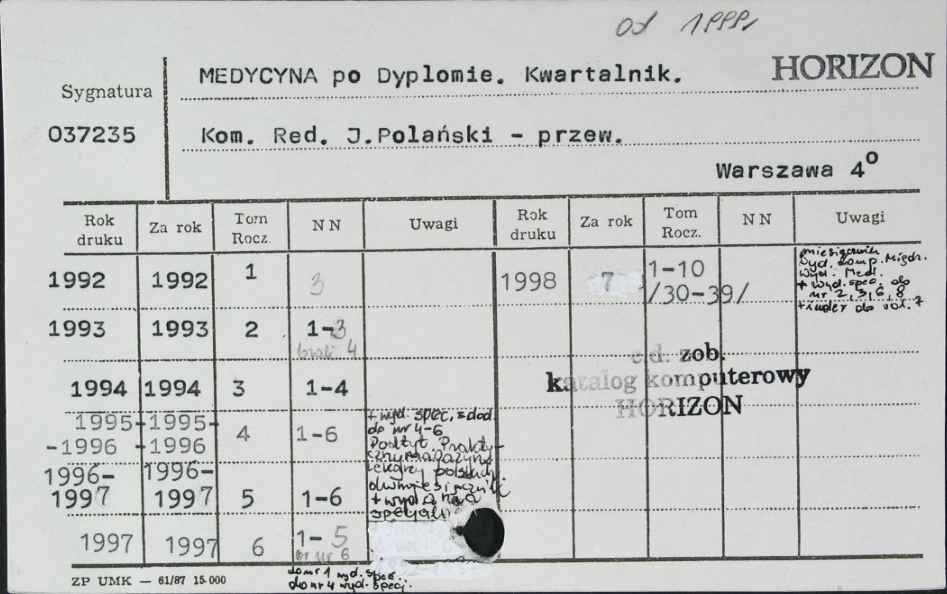 od 1999r
MEDYCYNA po Dyplomie. Kwartalnik. HORIZON
Sygnatura
037235 Kom. Red. J.Polański - przew.
Warszawa 4°
Rok druku Za rok Tom Rocz. NN Uwagi Rok druku Za rok Tom Rocz. NN Uwagi
1992 1992 1 3 1998 7 1-10 /30-39/ miesięcznik wyd. spec. do nr 2,3,6,8
1993 1993 2 1-3 brak 4
c.d. zob.
1994 1994 3 1-4
katalog komputerowy
HORIZON
1995-1996 1995-1996 4 1-6 + wyd. spec. = dod. do nr 4-6
1996-1997 1996-1997 5 1-6
1997 1997 6 1-5 nr 6
do nr 1 wyd. spec.
do nr 4 wyd. specj.
ZP UMK — 61/87 15.000